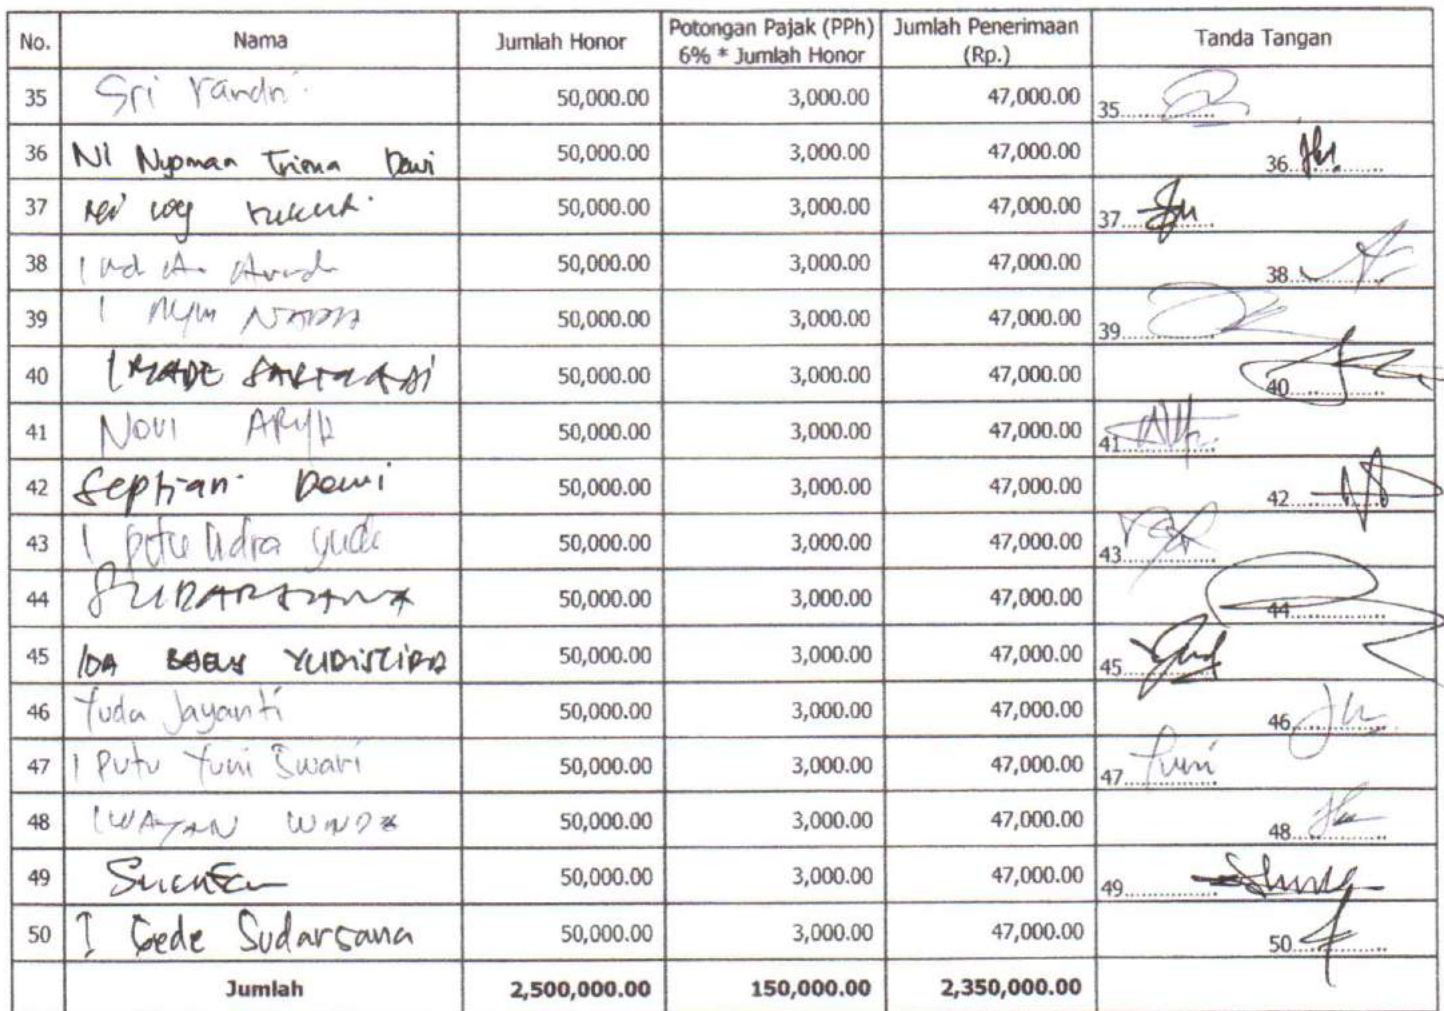 No. Nama Jumlah Honor Potongan Pajak (PPh) 6% * Jumlah Honor Jumlah Penerimaan (Rp.) Tanda Tangan
35 Sri 50,000.00 3,000.00 47,000.00 35
36 Ni Nyoman Trisna Dewi 50,000.00 3,000.00 47,000.00 36
37 50,000.00 3,000.00 47,000.00 37
38 50,000.00 3,000.00 47,000.00 38
39 I Nym 50,000.00 3,000.00 47,000.00 39
40 I MADE 50,000.00 3,000.00 47,000.00 40
41 Novi 50,000.00 3,000.00 47,000.00 41
42 Septiani Dewi 50,000.00 3,000.00 47,000.00 42
43 I Putu Indra Yuda 50,000.00 3,000.00 47,000.00 43
44 50,000.00 3,000.00 47,000.00 44
45 IDA BAGUS YUDISTIRA 50,000.00 3,000.00 47,000.00 45
46 Yuda Jayanti 50,000.00 3,000.00 47,000.00 46
47 I Putu Yuni Swari 50,000.00 3,000.00 47,000.00 47 Yuni
48 I WAYAN 50,000.00 3,000.00 47,000.00 48
49 50,000.00 3,000.00 47,000.00 49
50 I Gede Sudarsana 50,000.00 3,000.00 47,000.00 50
Jumlah 2,500,000.00 150,000.00 2,350,000.00